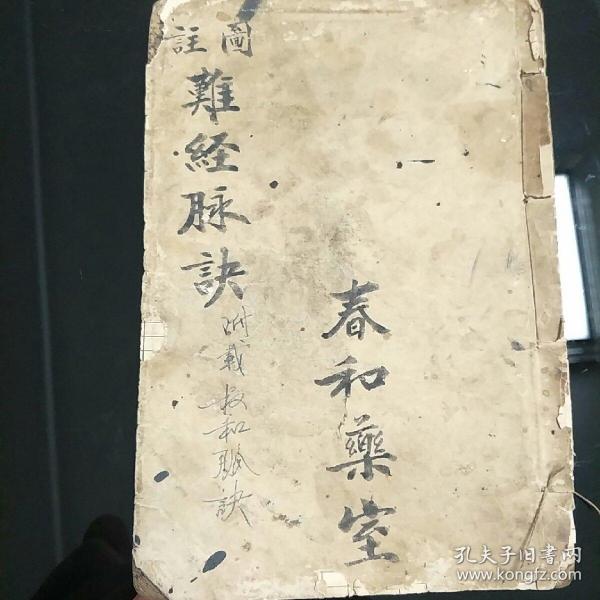 圖註
難経脉訣
附載叔和脈訣
春和藥室
孔夫子旧书网
www.kongfz.com